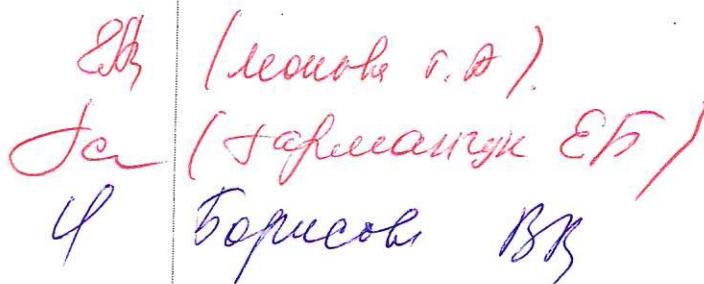 (Леонова Г.А).
(Гарманчук ЕБ)
Борисова ВВ